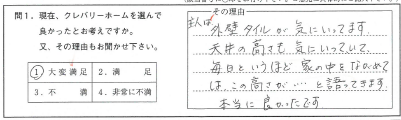 問1．現在、クレバリーホームを選んで
良かったとお考えですか。
又、その理由もお聞かせ下さい。
① 大変満足
2．満足
3．不満
4．非常に不満
その理由
主人は
外壁タイルが気にいってます。
天井の高さも気にいっていて、
毎日というほど家の中をながめて
は、この高さが…と語ってきます。
本当に良かったです